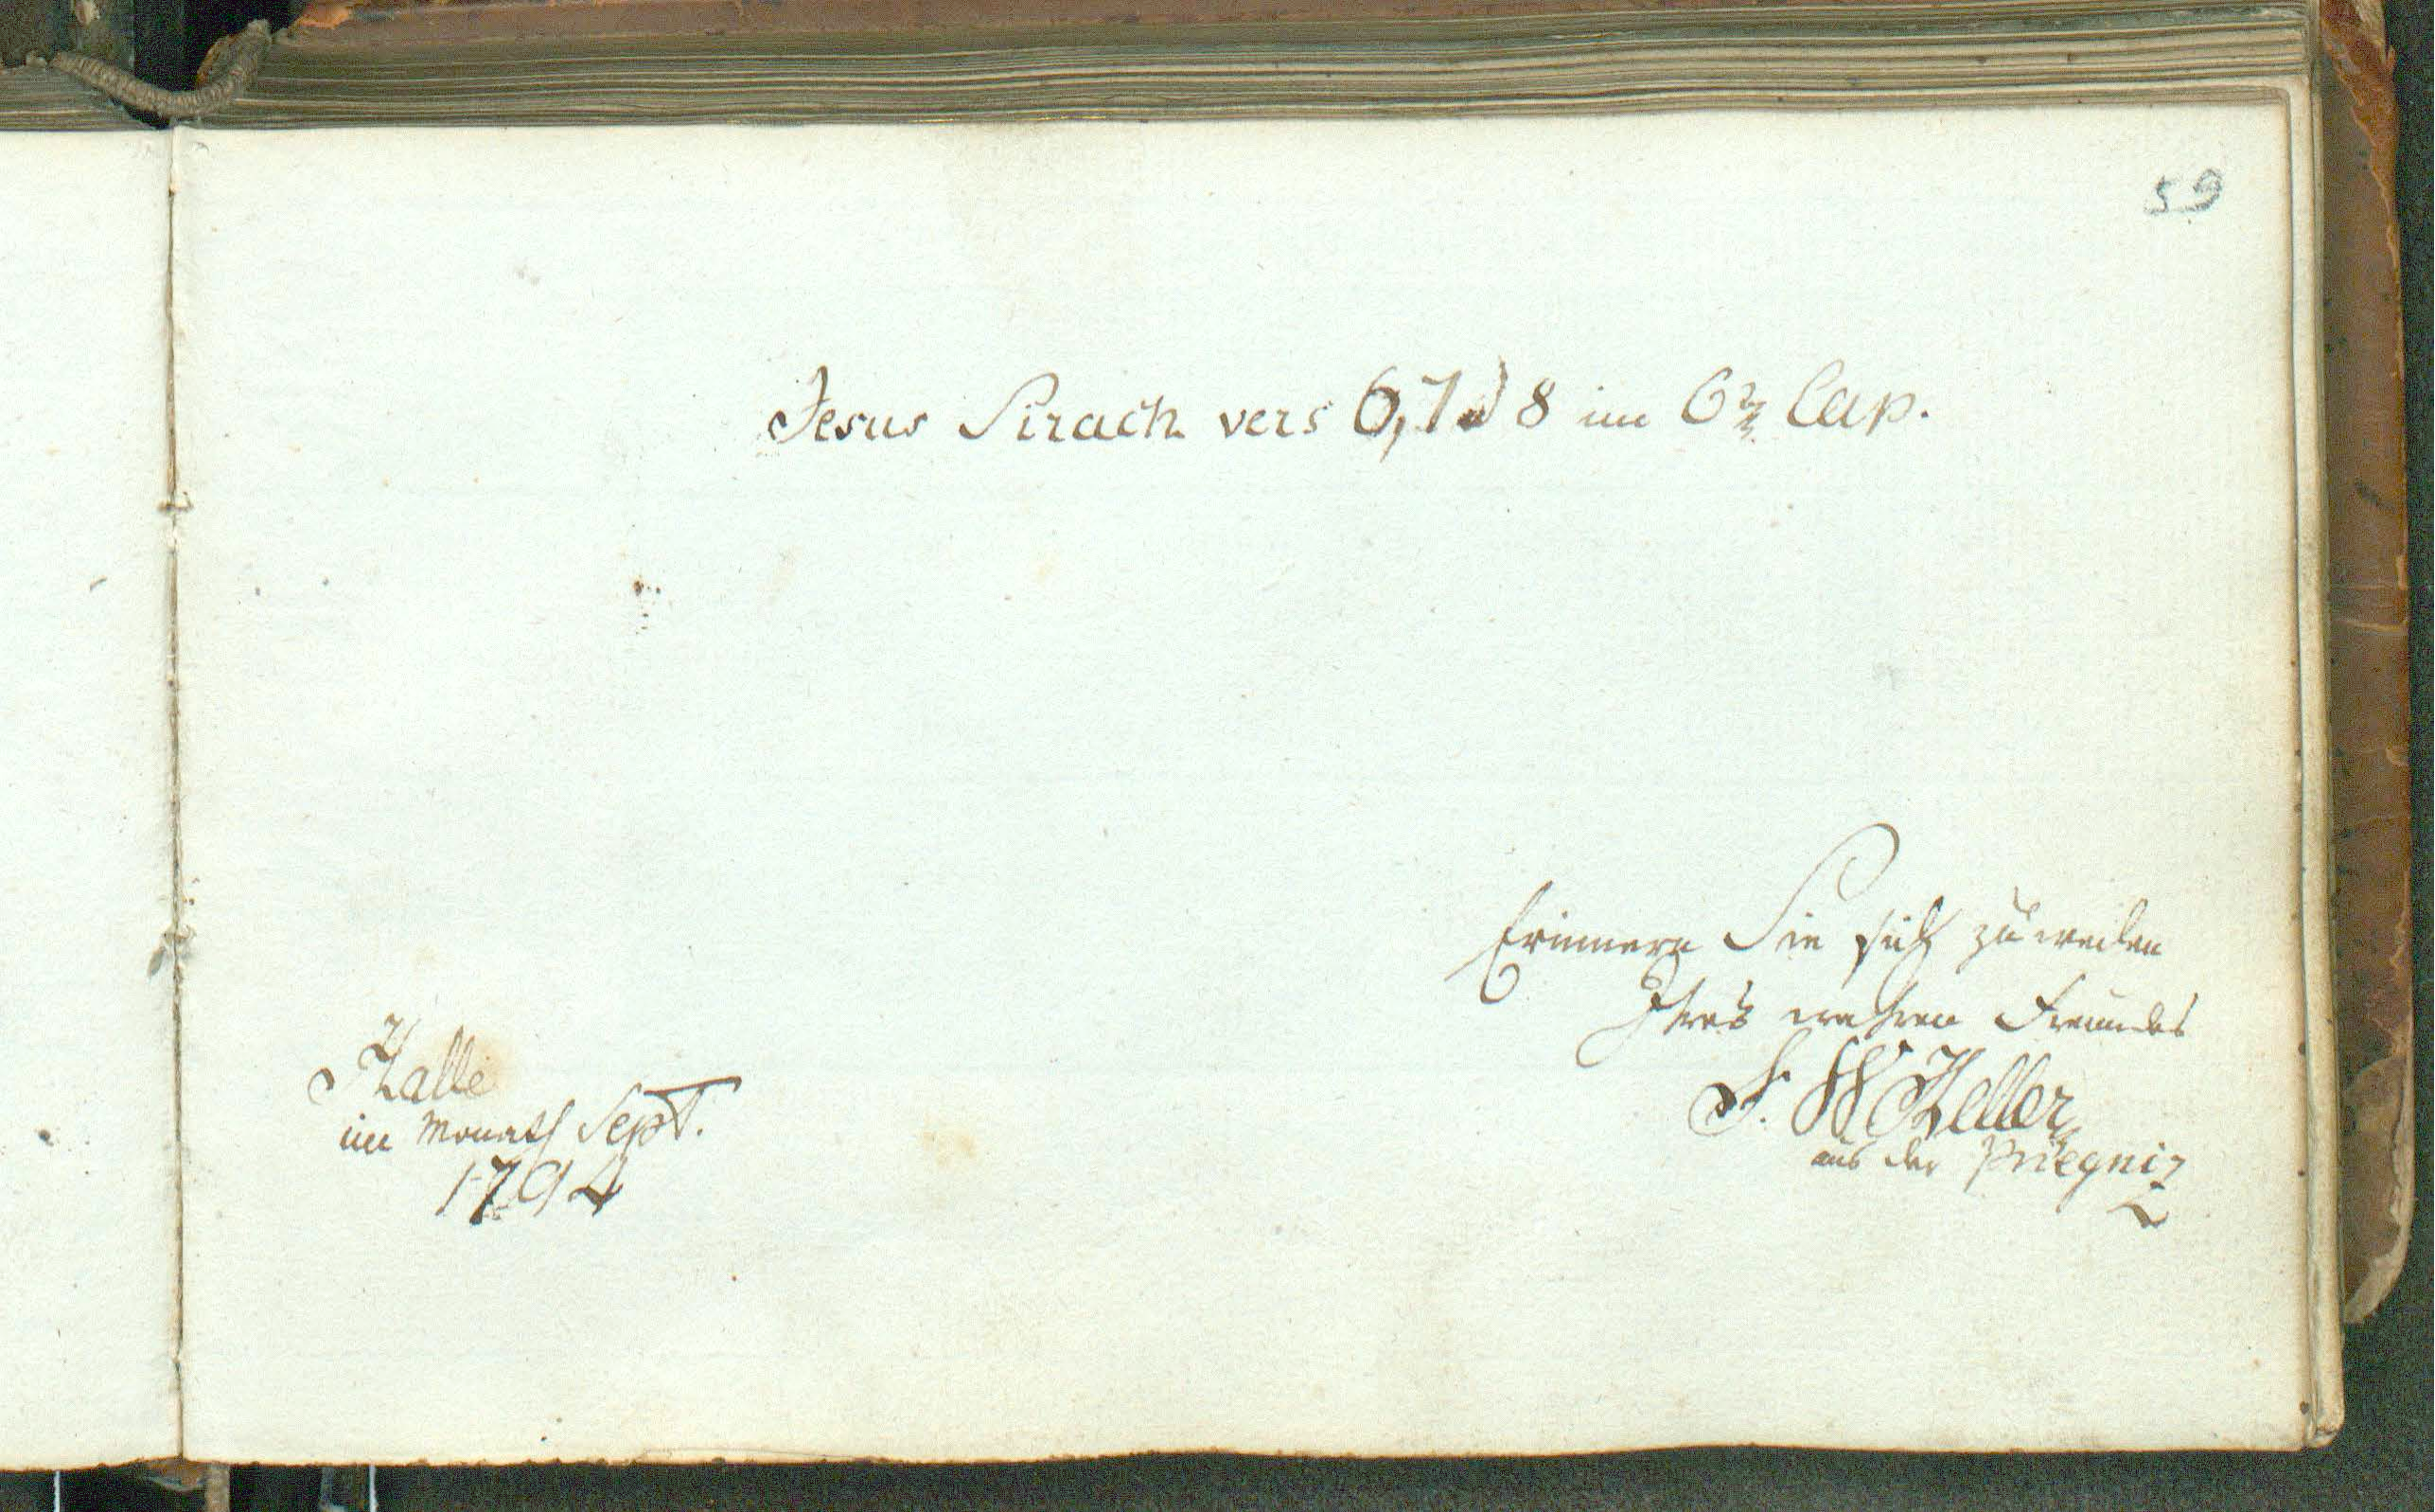 59
Jesus Sirach vers 6, 7 d 8 im 6n Cap.
Erinnern Sie sich zuweilen
Ihres wahren Freundes
F. W Keller
aus der Priegniz
Halle
im Monath Sept.
1794